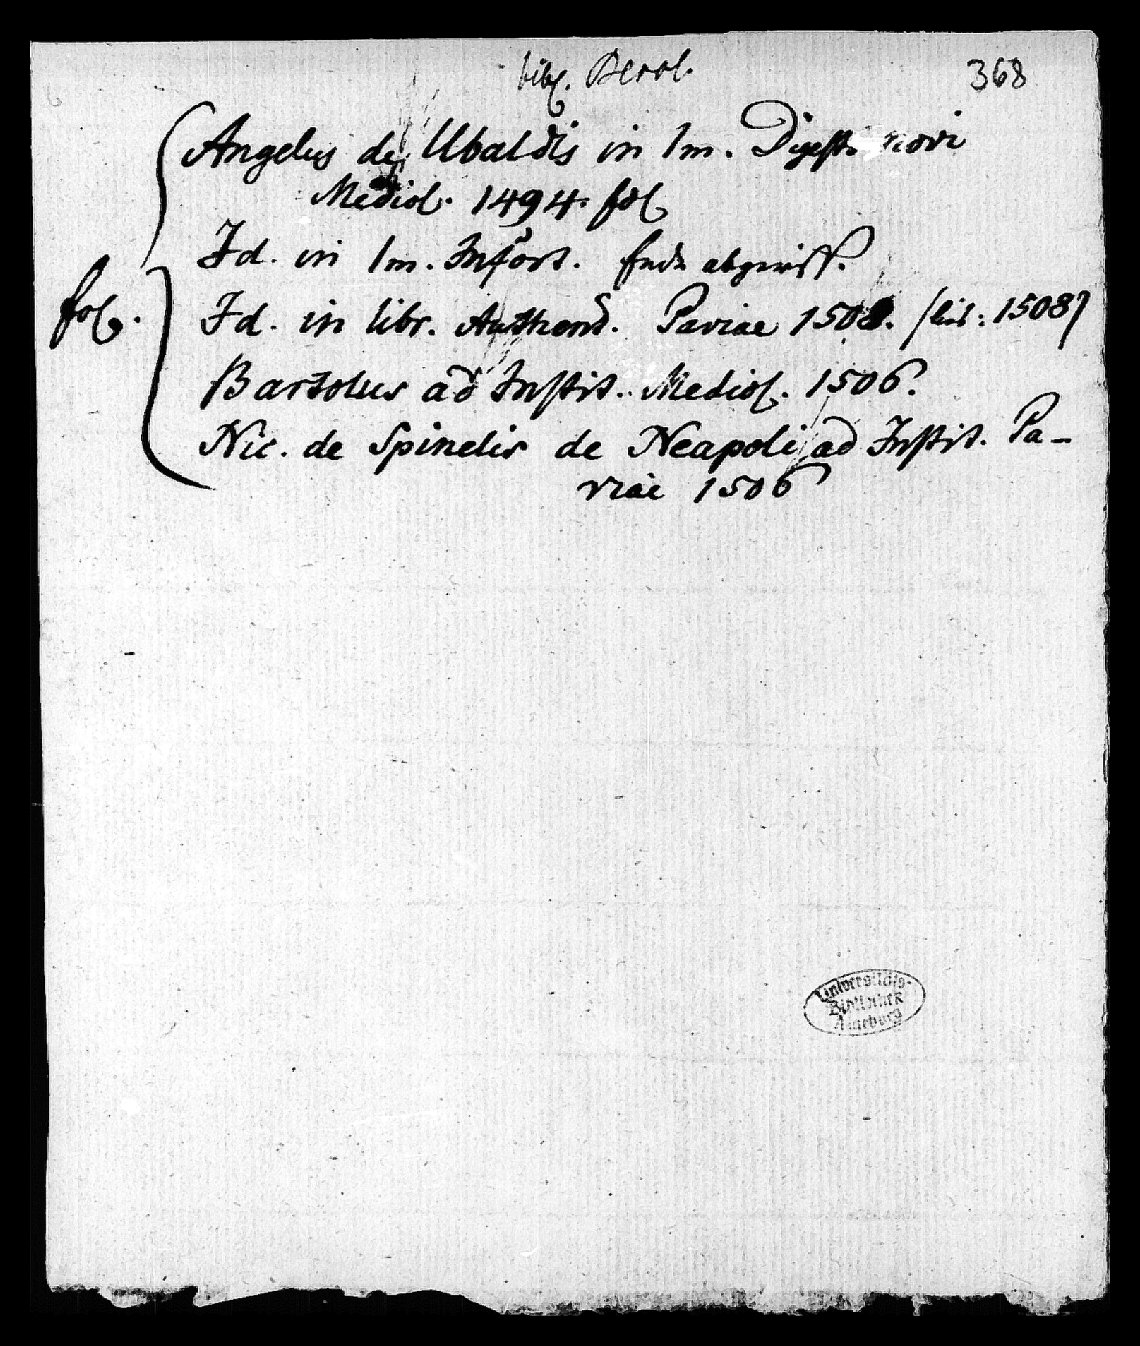 bibl. Berol.
368
Angelus de Ubaldis in Im. Digest. novi
Mediol. 1494. fol
Id. in Im. Infort. Ende abgeriss.
fol.
Id. in libr. Authent. Paviae 1508. 1508
Bartolus ad Instit. Mediol. 1506.
Nic. de Spinelis de Neapoli ad Instit. Pa-
viae 1506
Universitäts-
Bibliothek
Marburg